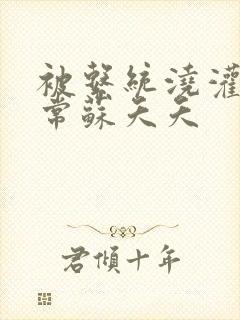 被系統澆灌
常蘇夭夭
君傾十年